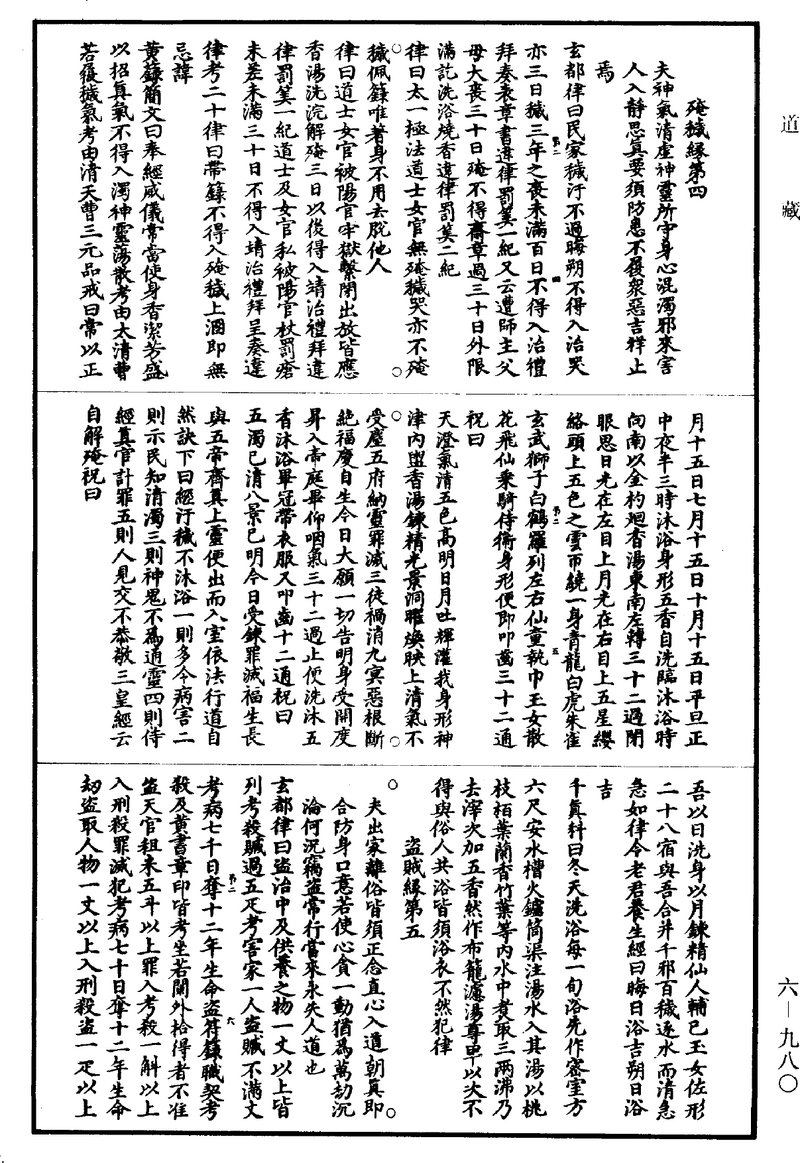 道藏
殗穢緣第四
夫神氣清虛神靈所守身心混濁邪來害
人入靜思真要須防患不履衆惡吉祥止
焉
玄都律曰民家穢汙不過晦朔不得入治哭
亦三日穢三年之喪未滿百日不得入治禮
拜奏表章書違律罰筭一紀又云遭師主父
母大喪三十日殗不得齋章過三十日外限
滿訖洗浴燒香違律罰筭二紀
律曰太一極法道士女官無殗穢哭亦不殗
穢佩籙唯著身不用去脫他人
律曰道士女官被陽官牢獄繫閉出放皆應
香湯洗浣解殗三日以後得入靖治禮拜違
律罰筭一紀道士及女官私被陽官杖罰瘡
未差未滿三十日不得入靖治禮拜呈奏違
律考二十律曰帶籙不得入殗穢上溷即無
忌諱
黃籙簡文曰奉經威儀常當使身香潔芳盛
以招真氣不得入濁神靈蕩散考由太清曹
若履穢氣考由清天曹三元品戒曰常以正
月十五日七月十五日十月十五日平旦正
中夜半三時沐浴身形五香自洗臨沐浴時
向南以金杓迴香湯東南左轉三十二過閉
眼思日光在左目上月光在右目上五星纓
絡頭上五色之雲帀繞一身青龍白虎朱雀
玄武獅子白鶴羅列左右仙童執巾玉女散
花飛仙乘騎侍衛身形便即叩齒三十二通
祝曰
天澄氣清五色高明日月吐輝灌我身形神
津內盥香湯鍊精光景洞曜煥映上清氣不
受塵五府納靈罪滅三徒禍消九冥惡根斷
絕福慶自生今日大願一切告明身受開度
昇入帝庭畢仰咽氣三十二過止便洗沐五
香沐浴畢冠帶衣服又叩齒十二通祝曰
五濁已清八景已明今日受鍊罪滅福生長
與五帝齊真上靈便出而入室依法行道自
然訣下曰經汙穢不沐浴一則多令病害二
則示民知清濁三則神鬼不為通靈四則侍
經真官計罪五則人見交不恭敬三皇經云
自解殗祝曰
吾以日洗身以月鍊精仙人輔己玉女佐形
二十八宿與吾合并千邪百穢逐水而清急
急如律令老君養生經曰晦日浴吉朔日浴
吉
千真科曰冬天洗浴每一旬浴先作密室方
六尺安水槽火鑪筒渠注湯水入其湯以桃
枝栢葉蘭香竹葉等內水中煮取三兩沸乃
去滓次加五香然作布籠濾湯尊卑以次不
得與俗人共浴皆須浴衣不然犯律
盜賊緣第五
夫出家離俗皆須正念直心入道朝真即
合防身口意若使心貪一動猶為萬劫沉
淪何況竊盜常行當來永失人道也
玄都律曰盜治中及供養之物一丈以上皆
列考殺贓過五疋考害家一人盜贓不滿丈
考病七千日奪十二年生命盜符籙職契考
殺及黃書章印皆考坐若閫外拾得者不准
盜天官租米五斗以上罪入考殺一斛以上
入刑殺罪滅犯考病七十日奪十二年生命
劫盜取人物一丈以上入刑殺盜一疋以上
六—九八〇